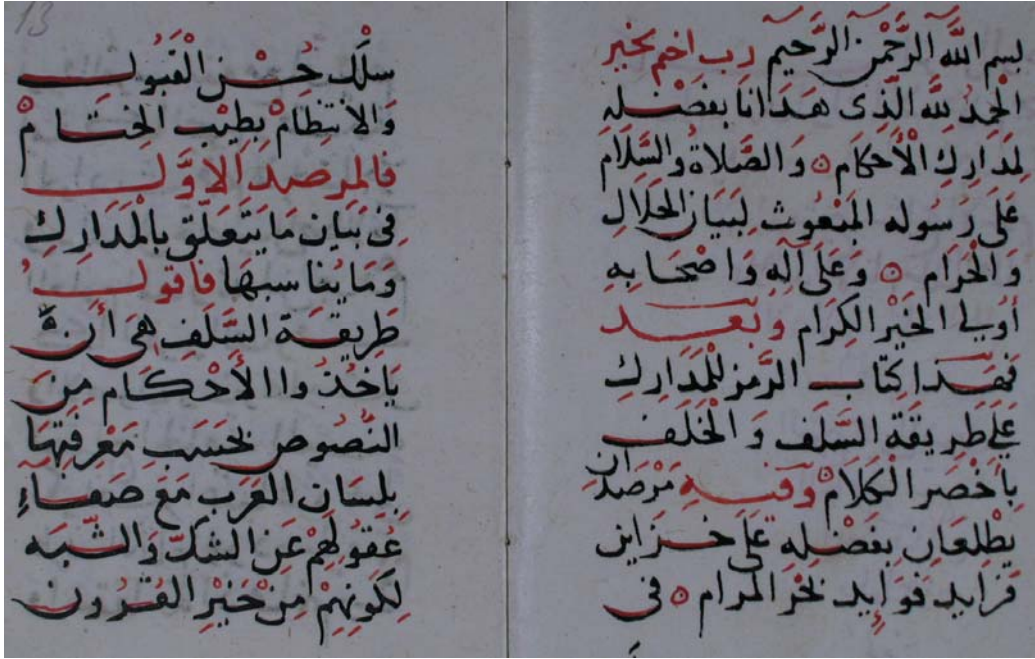 بسم الله الرَّحْمٰنِ الرَّحيمِ رب اختم بخير
الْحمدُ لله الَّذِى هَدَانَا بِفَضْلِهِ
لِمَدَارِكِ الْأَحكَامِ ۞ وَالصَّلَاةُ وَالسَّلَام
عَلَى رَسُولِهِ المَبْعُوثِ لِبَيَانِ الحَلَالِ
وَالْحَرَامِ ۞ وَعَلَى آلِهِ وَاصْحَابِهِ
أُولِي الخَيْرِ الكِرَامِ وَبَعْد
فَهَذَا كِتَابُ الرَّمْزِ لِلْمَدَارِكِ
عَلَى طَرِيقَةِ السَّلَفِ وَالْخَلَفِ
بِأَخْصَرِ الْكَلَامِ وَفيهِ مَرْصَدَان
يَطْلُعَانِ بِفَضْلِهِ عَلَى خَزَايِنِ
فَرَايِدِ فَوَايِدِ بَحْرِ المَرَامِ ۞ فى
13
سِلْكِ حُسْنِ القَبُولِ
وَالانْتِظَامْ بِطِيْبِ الْخِتَامْ
فَالمَرْصَدُ الاوَّل
فِى بَيَانِ مَا يَتَعَلَّقُ بِالْمَدَارِكِ
وَمَا يُنَاسِبُهَا فَاقُولُ
طَرِيقَةُ السَّلَفِ هِىَ أَنَّهُ
يَاخُذُوا الأَحْكَامَ مِنَ
النُّصُوصِ بِحَسَبِ مَعْرِفَتِهَا
بِلِسَانِ العَرَبِ مَعَ صَفَاءِ
عُقُولِهِمْ عَنِ الشَّكِّ وَالشُّبَهِ
لِكَوْنِهِمْ مِنْ خَيْرِ القُرُونِ